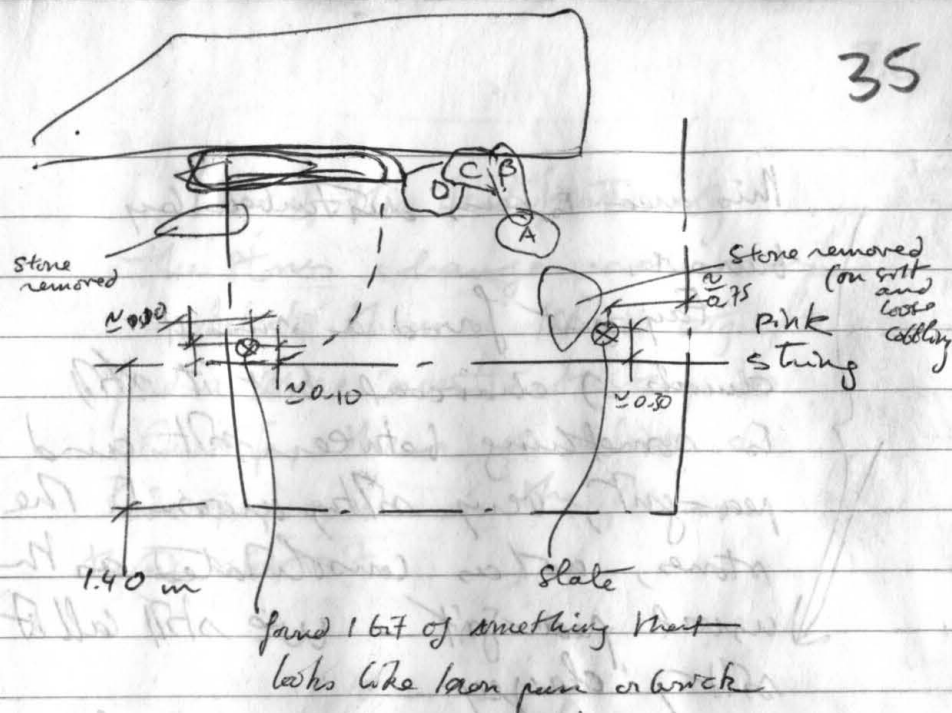 35
C B
D
A
stone
removed
stone removed
(on silt
and
loose
cobbling
≈
0.75
pink
string
≈0.10
≈0.30
1.40 m
slate
found 1 bit of something that
looks like or brick